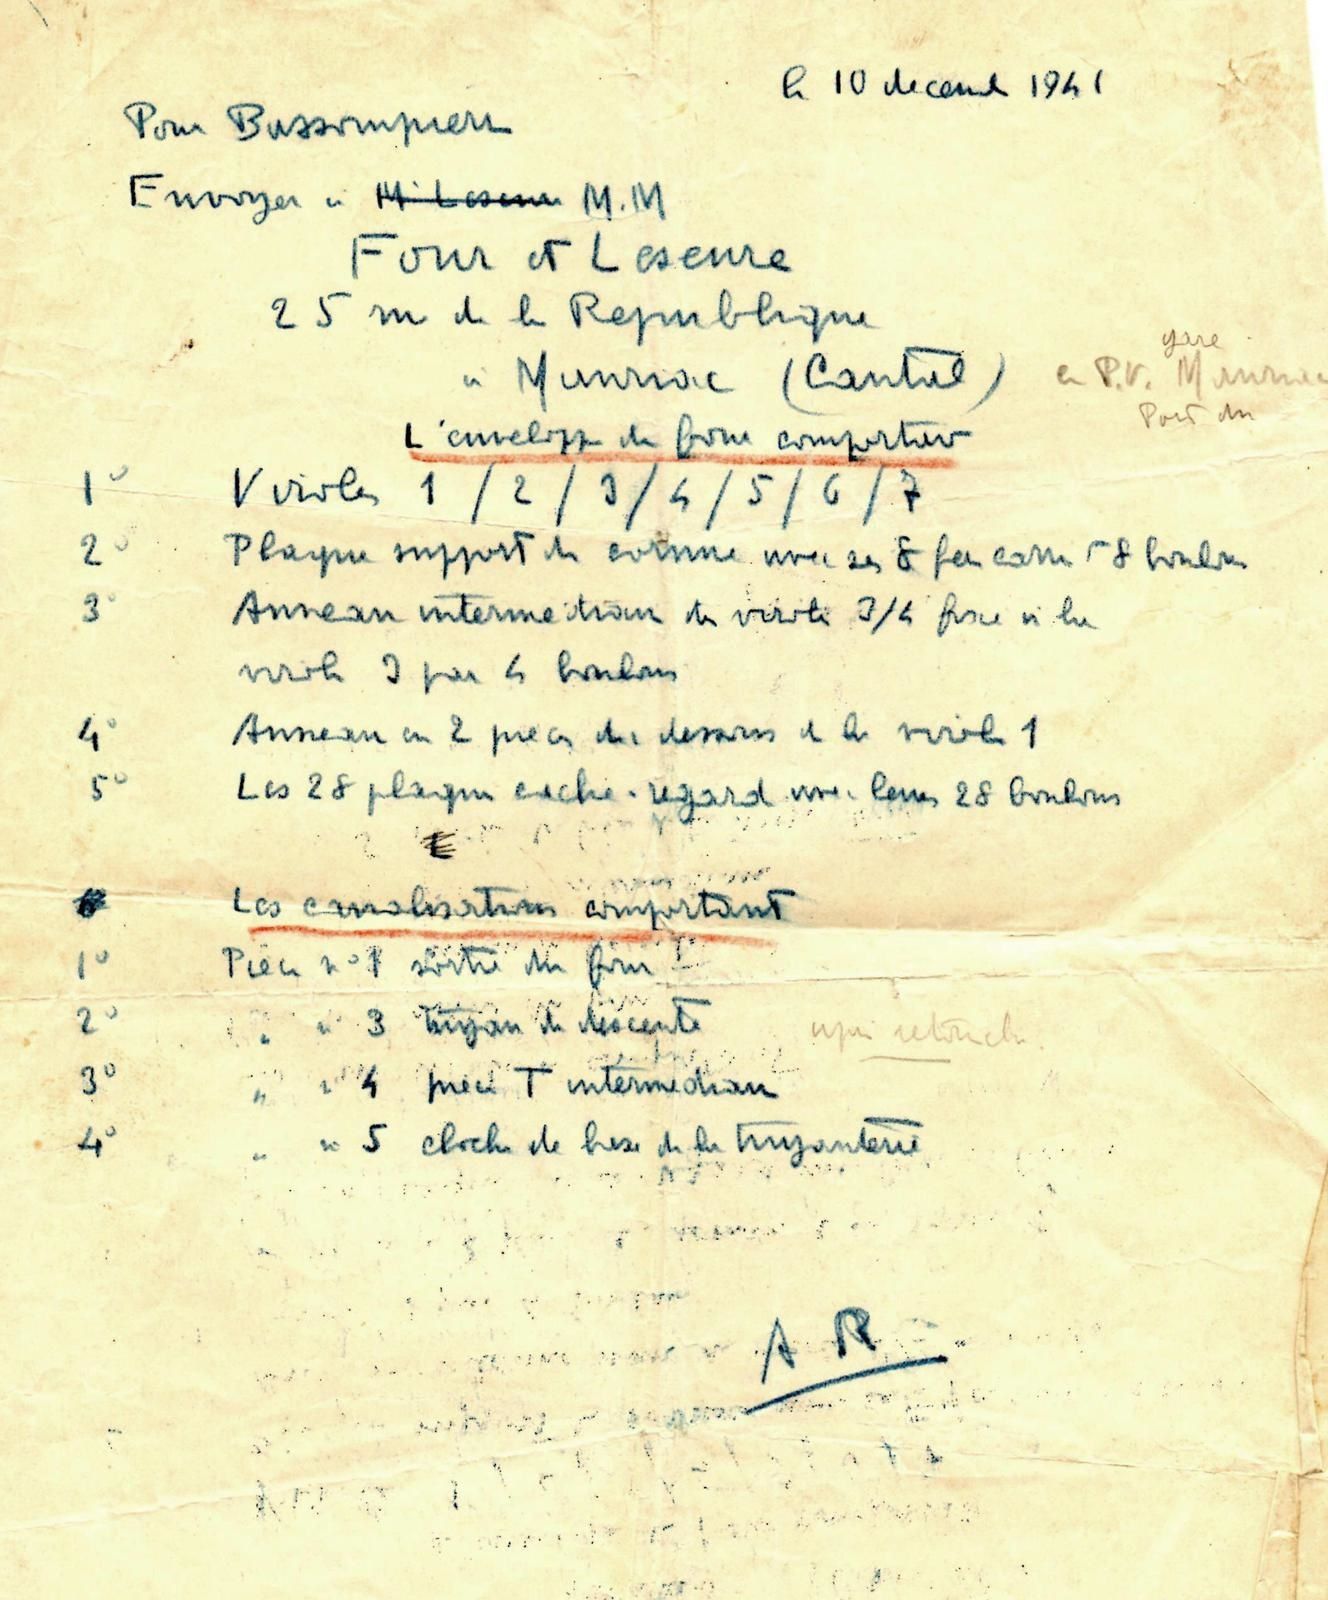 le 10 decembre 1941
Pour Bassompierre
Envoyer à M. Leseure M.M
Four et Leseure
25 rue de la Republique
à Mauriac (Cantal)
gare
en P.V. Mauriac
Port du
L'enveloppe du four comportant
1° Viroles 1 / 2 / 3 / 4 / 5 / 6 / 7
2° Plaque support de cornue avec ses 8 fers 8 boulons
3° Anneau intermediaire de virole 3/4 fixé à la
virole 3 par 4 boulons
4° Anneau en 2 pieces du dessous de la virole 1
5° Les 28 plaques cache-regard avec leurs 28 boulons
Les canalisations comportant
1° Pièce n° 1 sortie du four
2° " " 3 tuyau de descente
retouche
3° " " 4 piece T intermediaire
4° " " 5 cloche de base de la tuyauterie
A R